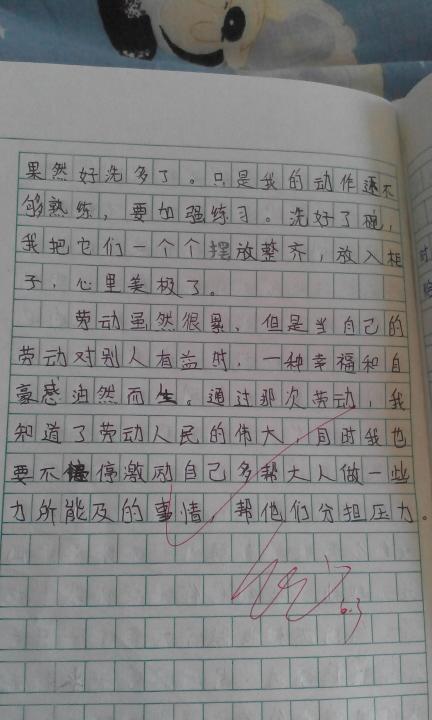 果然好洗多了。只是我的动作还不
够熟练，要加强练习。洗好了碗，
我把它们一个个摆放整齐，放入柜
子，心里美极了。
劳动虽然很累，但是当自己的
劳动对别人有益时，一种幸福和自
豪感油然而生。通过那次劳动，我
知道了劳动人民的伟大，同时我也
要不停激励自己多帮大人做一些
力所能及的事情，帮他们分担压力。
6.3